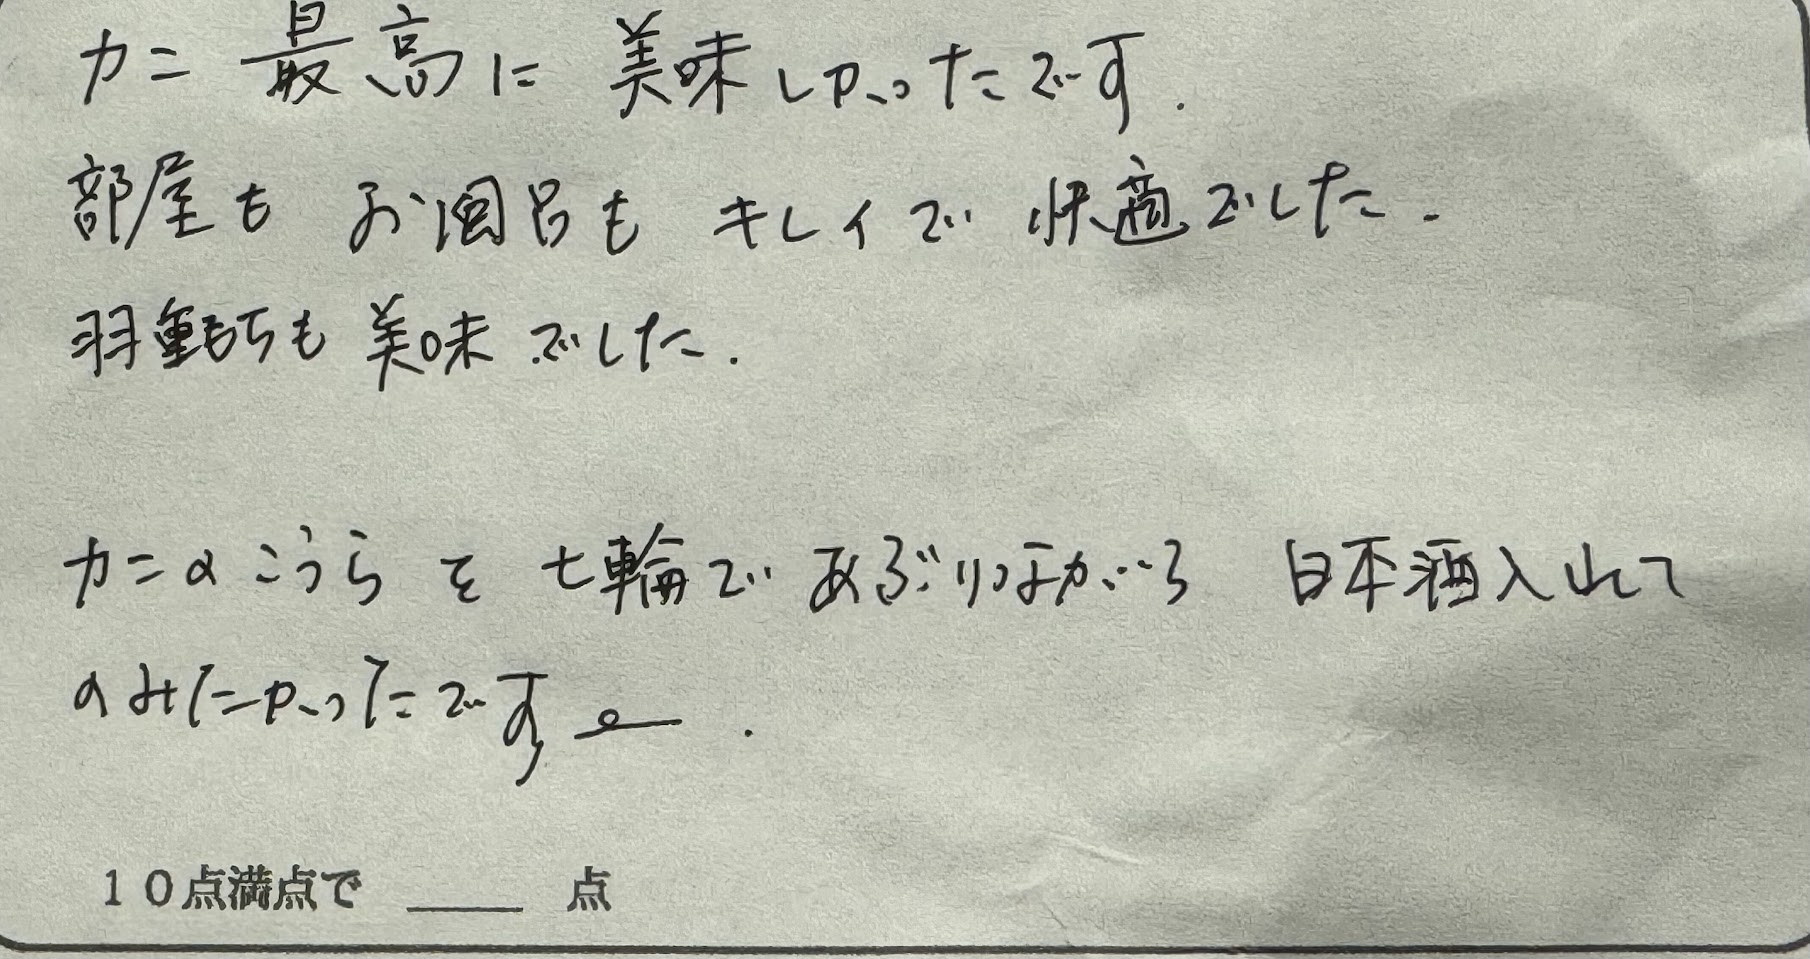 カニ 最高に 美味しかったです.
部屋も お風呂も キレイで 快適でした.
羽重もちも 美味でした.
カニのこうらを 七輪であぶりながら 日本酒入れて
のみたかったです.
10点満点で ____ 点